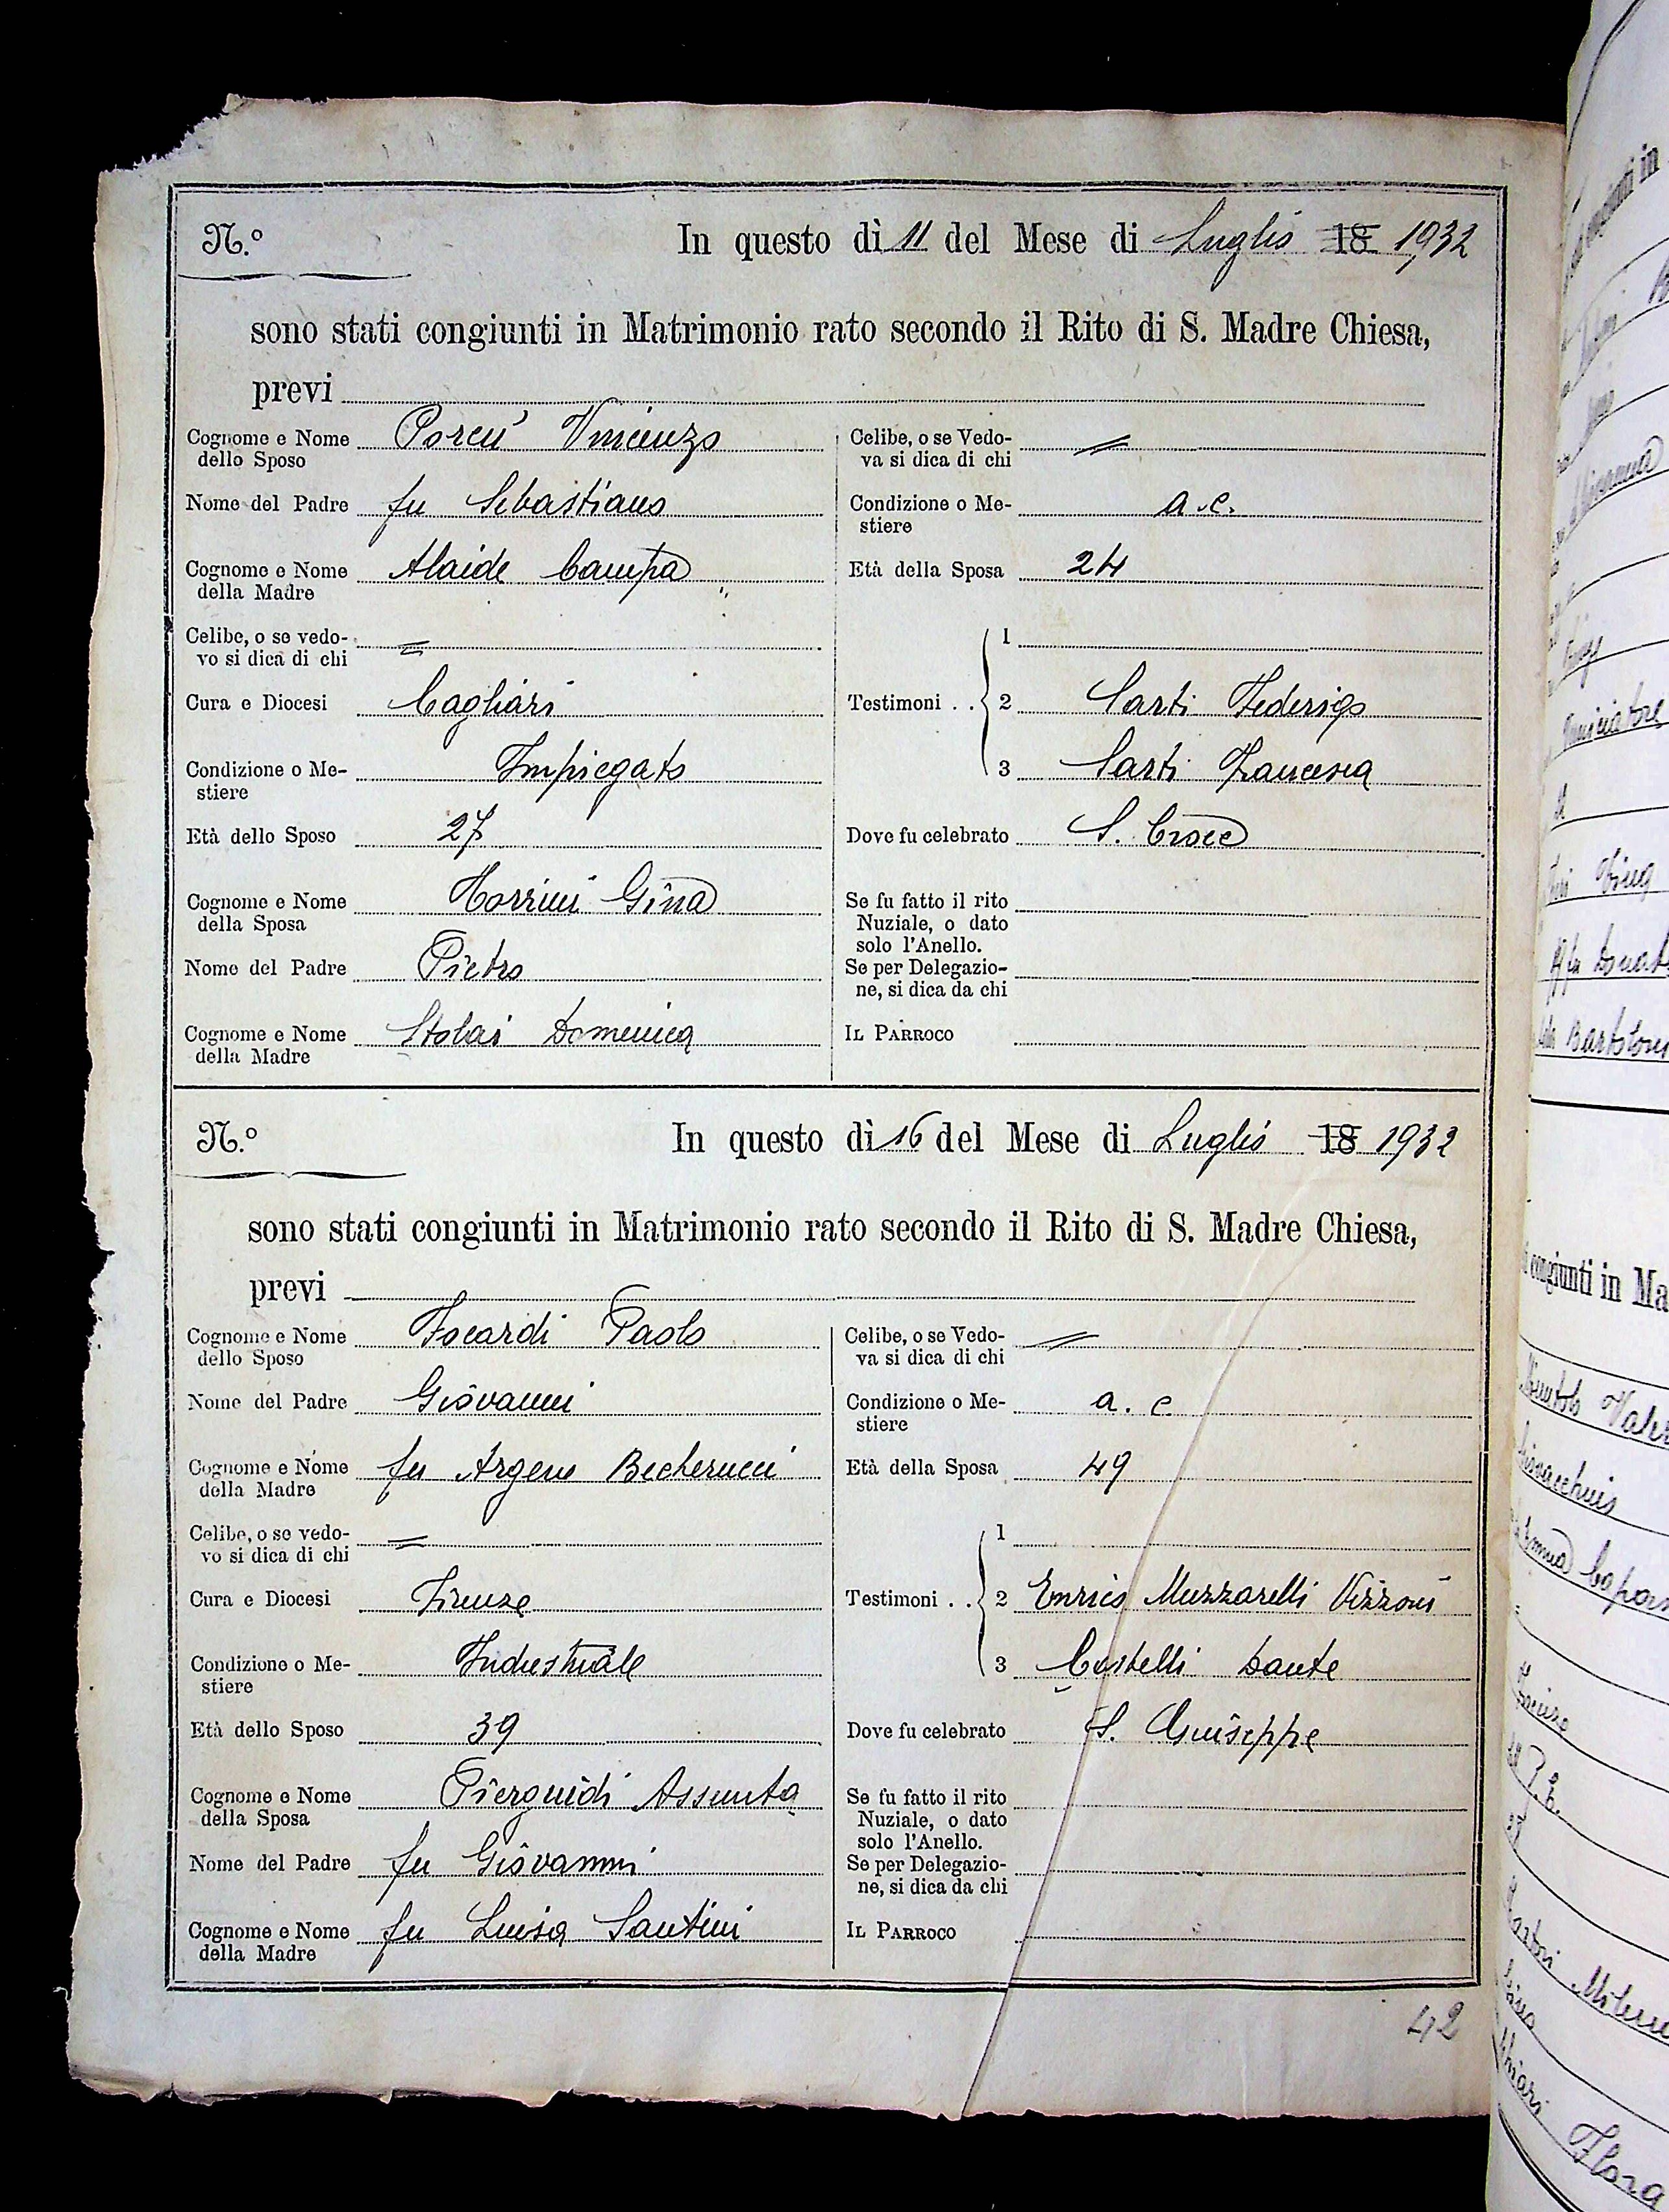 N.º In questo dì 11 del Mese di Luglio 18 1932
sono stati congiunti in Matrimonio rato secondo il Rito di S. Madre Chiesa,
previ
Cognome e Nome Porcu' Vincenzo
dello Sposo
Nome del Padre fu Sebastiano
Cognome e Nome Alaide Campa
della Madre
Celibe, o se vedo- =
vo si dica di chi
Cura e Diocesi Cagliari
Condizione o Me- Impiegato
stiere
Età dello Sposo 27
Cognome e Nome Gina
della Sposa
Nome del Padre Pietro
Cognome e Nome Domenica
della Madre
Celibe, o se Vedo- =
va si dica di chi
Condizione o Me- a.c.
stiere
Età della Sposa 24
1
Testimoni . . 2 Sarti Federigo
3 Sarti Francesca
Dove fu celebrato S. Croce
Se fu fatto il rito
Nuziale, o dato
solo l'Anello.
Se per Delegazio-
ne, si dica da chi
IL PARROCO
N.º In questo dì 16 del Mese di Luglio 18 1932
sono stati congiunti in Matrimonio rato secondo il Rito di S. Madre Chiesa,
previ
Cognome e Nome Focardi Paolo
dello Sposo
Nome del Padre Giovanni
Cognome e Nome fu Becherucci
della Madre
Celibe, o se vedo- =
vo si dica di chi
Cura e Diocesi Firenze
Condizione o Me- Industriale
stiere
Età dello Sposo 39
Cognome e Nome Pierguidi Assunta
della Sposa
Nome del Padre fu Giovanni
Cognome e Nome fu Luisa Santini
della Madre
Celibe, o se Vedo- =
va si dica di chi
Condizione o Me- a. c.
stiere
Età della Sposa 49
1
Testimoni . . 2 Enrico Muzzarelli Vizzoni
3 Castelli Dante
Dove fu celebrato S. Giuseppe
Se fu fatto il rito
Nuziale, o dato
solo l'Anello.
Se per Delegazio-
ne, si dica da chi
IL PARROCO
42
congiunti in Ma